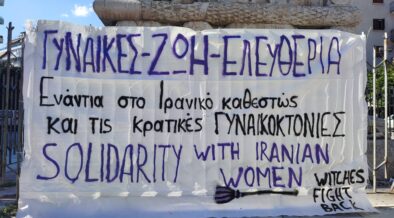 ΓΥΝΑΙΚΕΣ-ΖΩΗ-ΕΛΕΥΘΕΡΙΑ
Ενάντια στο Ιρανικό καθεστώς
και τις κρατικές ΓΥΝΑΙΚΟΚΤΟΝΙΕΣ
SOLIDARITY WITH IRANIAN
WOMEN
WITCHES
FIGHT
BACK